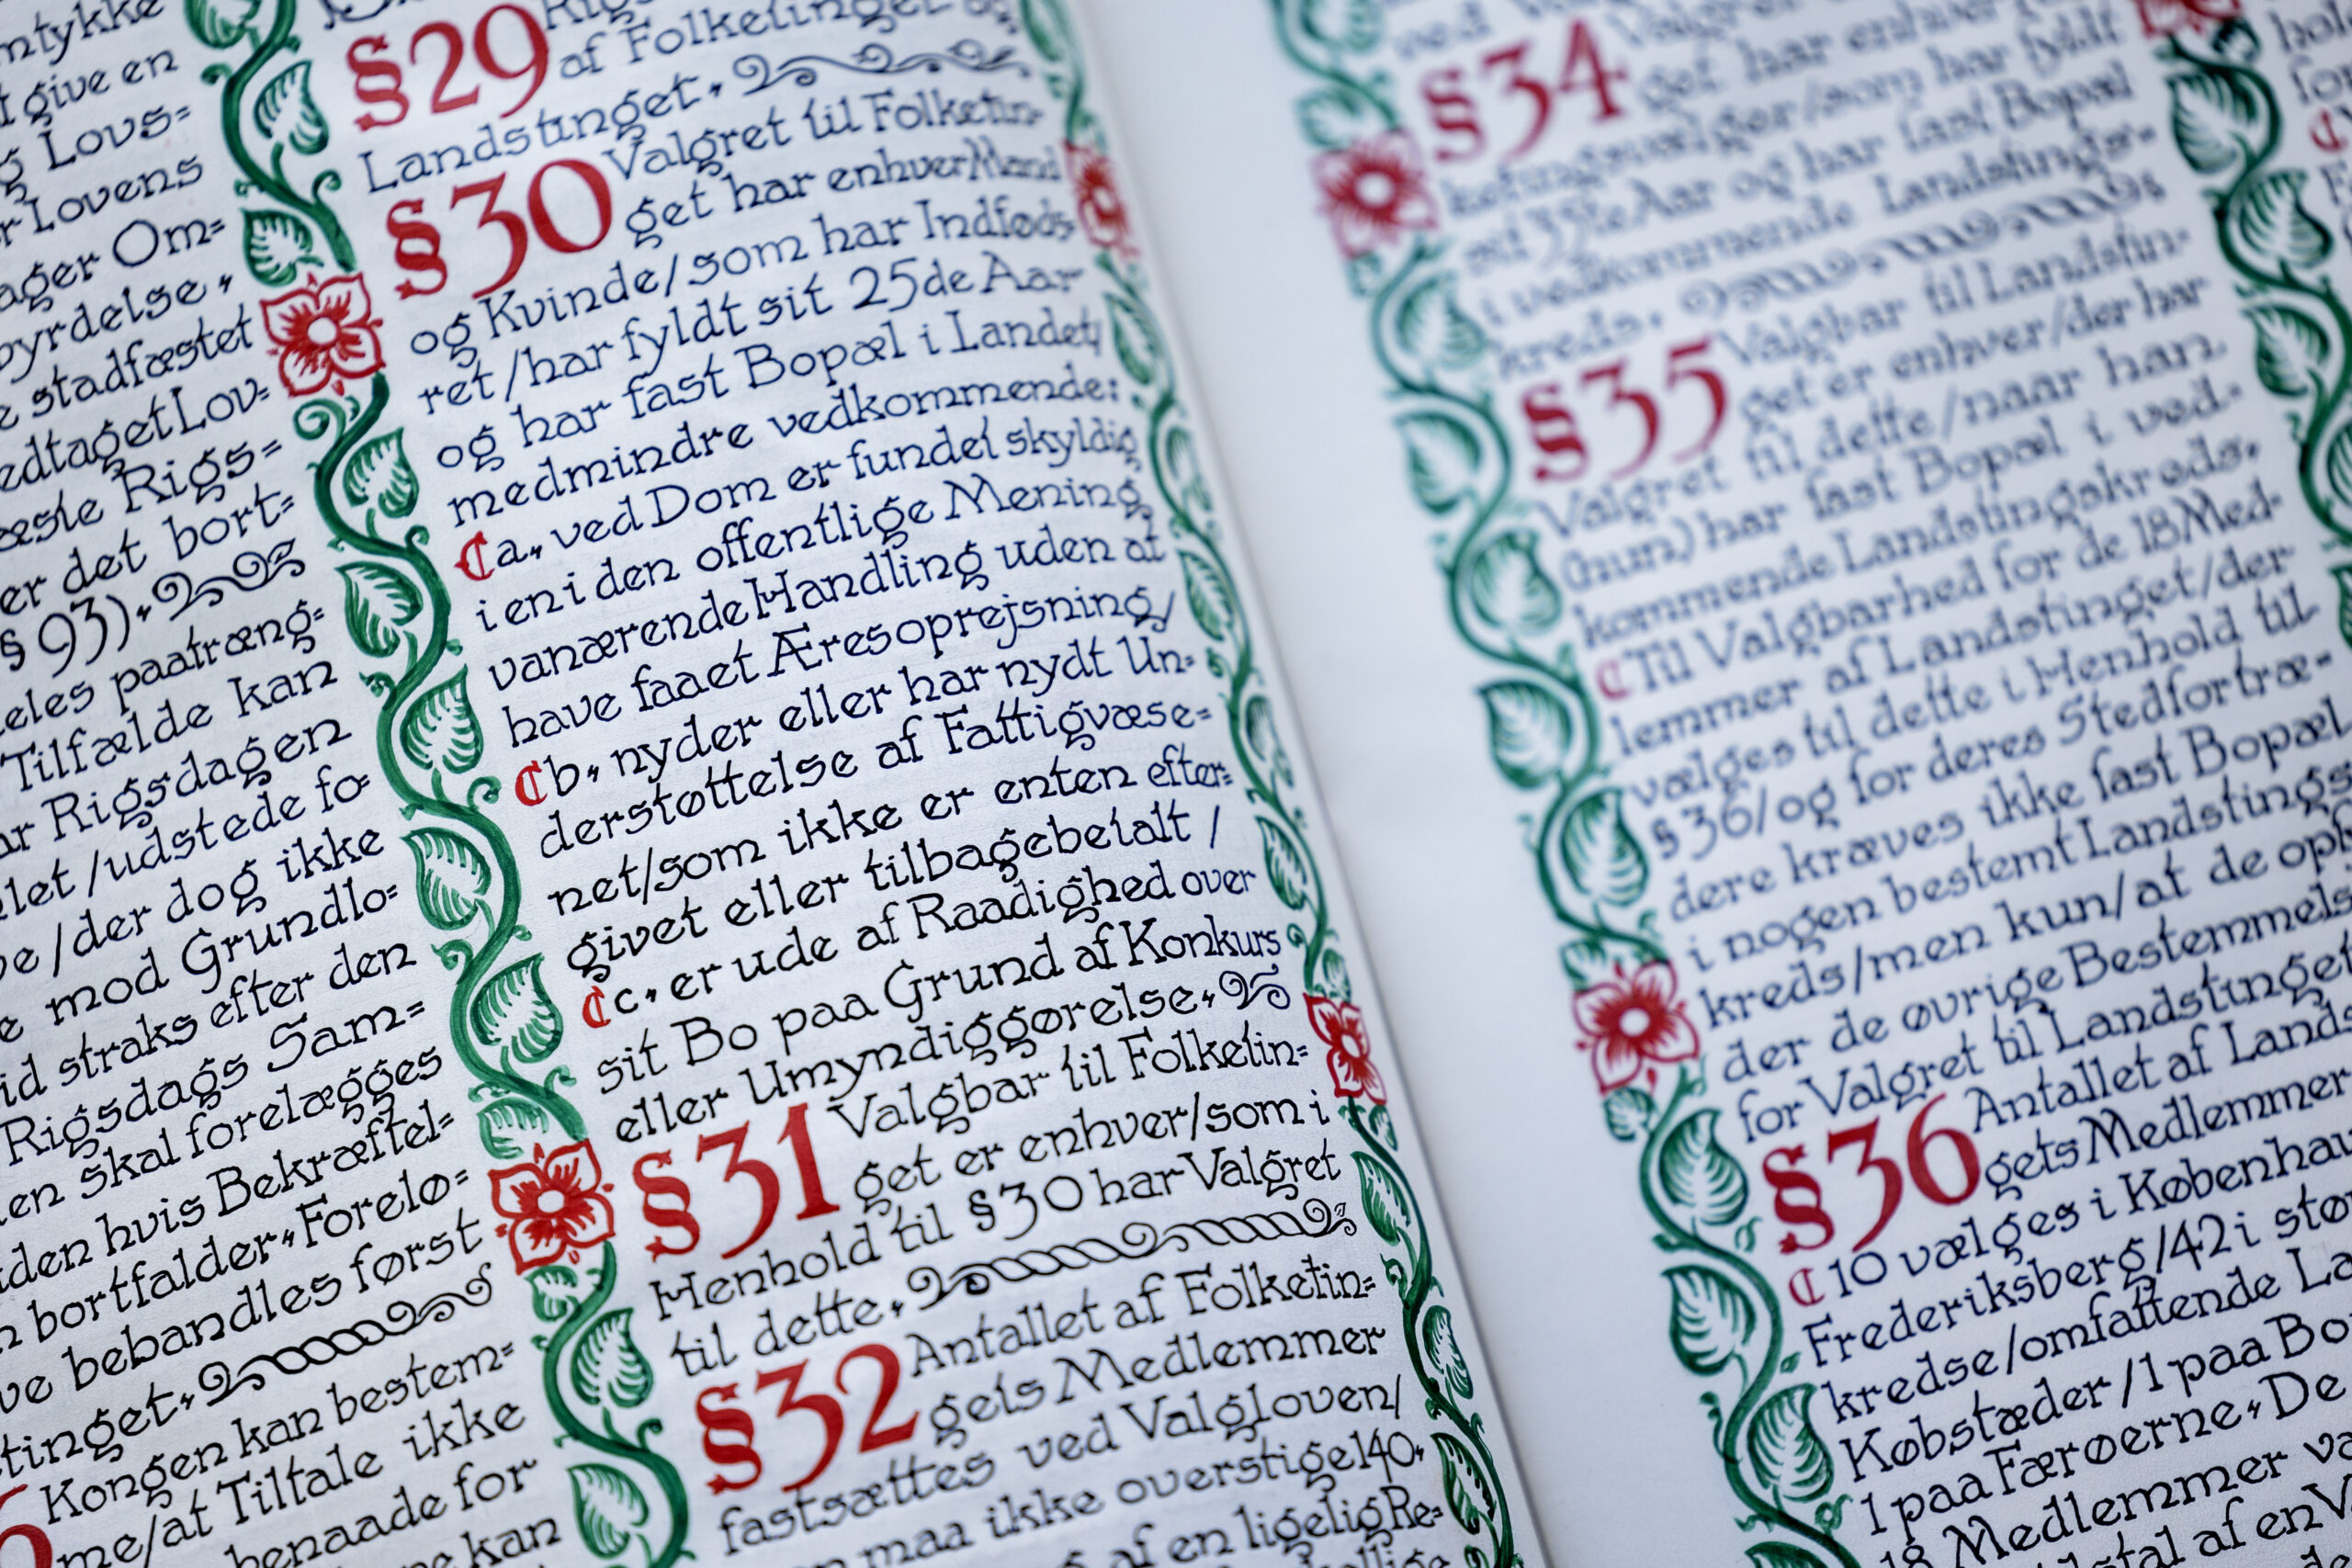 mtykke
give en
Lovs=
Lovens
ager Om=
byrdelse,
stadfæstet
edtaget Lov=
æste Rigs=
er det bort=
§ 93).
eles paatræng=
Tilfælde kan
ar Rigsdagen
let / udstede fo=
be / der dog ikke
e mod Grundlo=
id straks efter den
Rigsdags Sam=
en skal forelægges
den hvis Bekræftel=
n bortfalder, Forelø=
ve bebandles først
tinget,
Kongen kan bestem=
me / at Tiltale ikke
benaade for
kan
§29
af Folketinget og
Landstinget,
§30 Valgret til Folketin=
get har enhver Mand
og Kvinde / som har Indføds=
ret / har fyldt sit 25de Aar
og har fast Bopæl i Landet/
medmindre vedkommende:
a, ved Dom er fundet skyldig
i en i den offentlige Mening
vanærende Handling uden at
have faaet Æresoprejsning/
b, nyder eller har nydt Un=
derstøttelse af Fattigvæse=
net/som ikke er enten efter=
givet eller tilbagebetalt /
c, er ude af Raadighed over
sit Bo paa Grund af Konkurs
eller Umyndiggørelse,
§31 Valgbar til Folketin=
get er enhver/som i
Henhold til §30 har Valgret
til dette,
§32 Antallet af Folketin=
gets Medlemmer
fastsættes ved Valgloven/
maa ikke overstige 140,
af en ligelig Re=
§34
get har enhver
ketingsvælger/som har fyldt
sit 35te Aar og har fast Bopæl
i vedkommende Landstings=
kreds,
§35 Valgbar til Landstin=
get er enhver/der har
Valgret til dette/naar han
(hun) har fast Bopæl i ved=
kommende Landstingskreds,
Til Valgbarhed for de 18 Med=
lemmer af Landstinget/der
vælges til dette i Henhold til
§ 36/og for deres Stedfortræ=
dere kræves ikke fast Bopæl
i nogen bestemt Landstings
kreds/men kun/at de opf
der de øvrige Bestemmels
for Valgret til Landstinget
§36 Antallet af Lands
gets Medlemmer
10 vælges i Københav
Frederiksberg/42 i stø
kredse/omfattende La
Købstæder/1 paa Bo
1 paa Færøerne, De
18 Medlemmer va
af en V